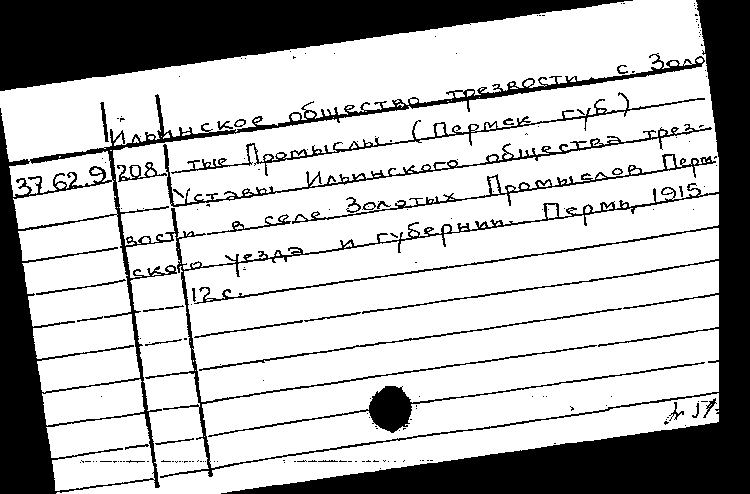 Ильинское общество трезвости. с. Золо
37.62.9 208. тые Промыслы. (Пермск губ.)
Уставы Ильинского общества трез-
вости в селе Золотых Промыслов Перм-
ского уезда и губернии. Пермь, 1915.
12 с.